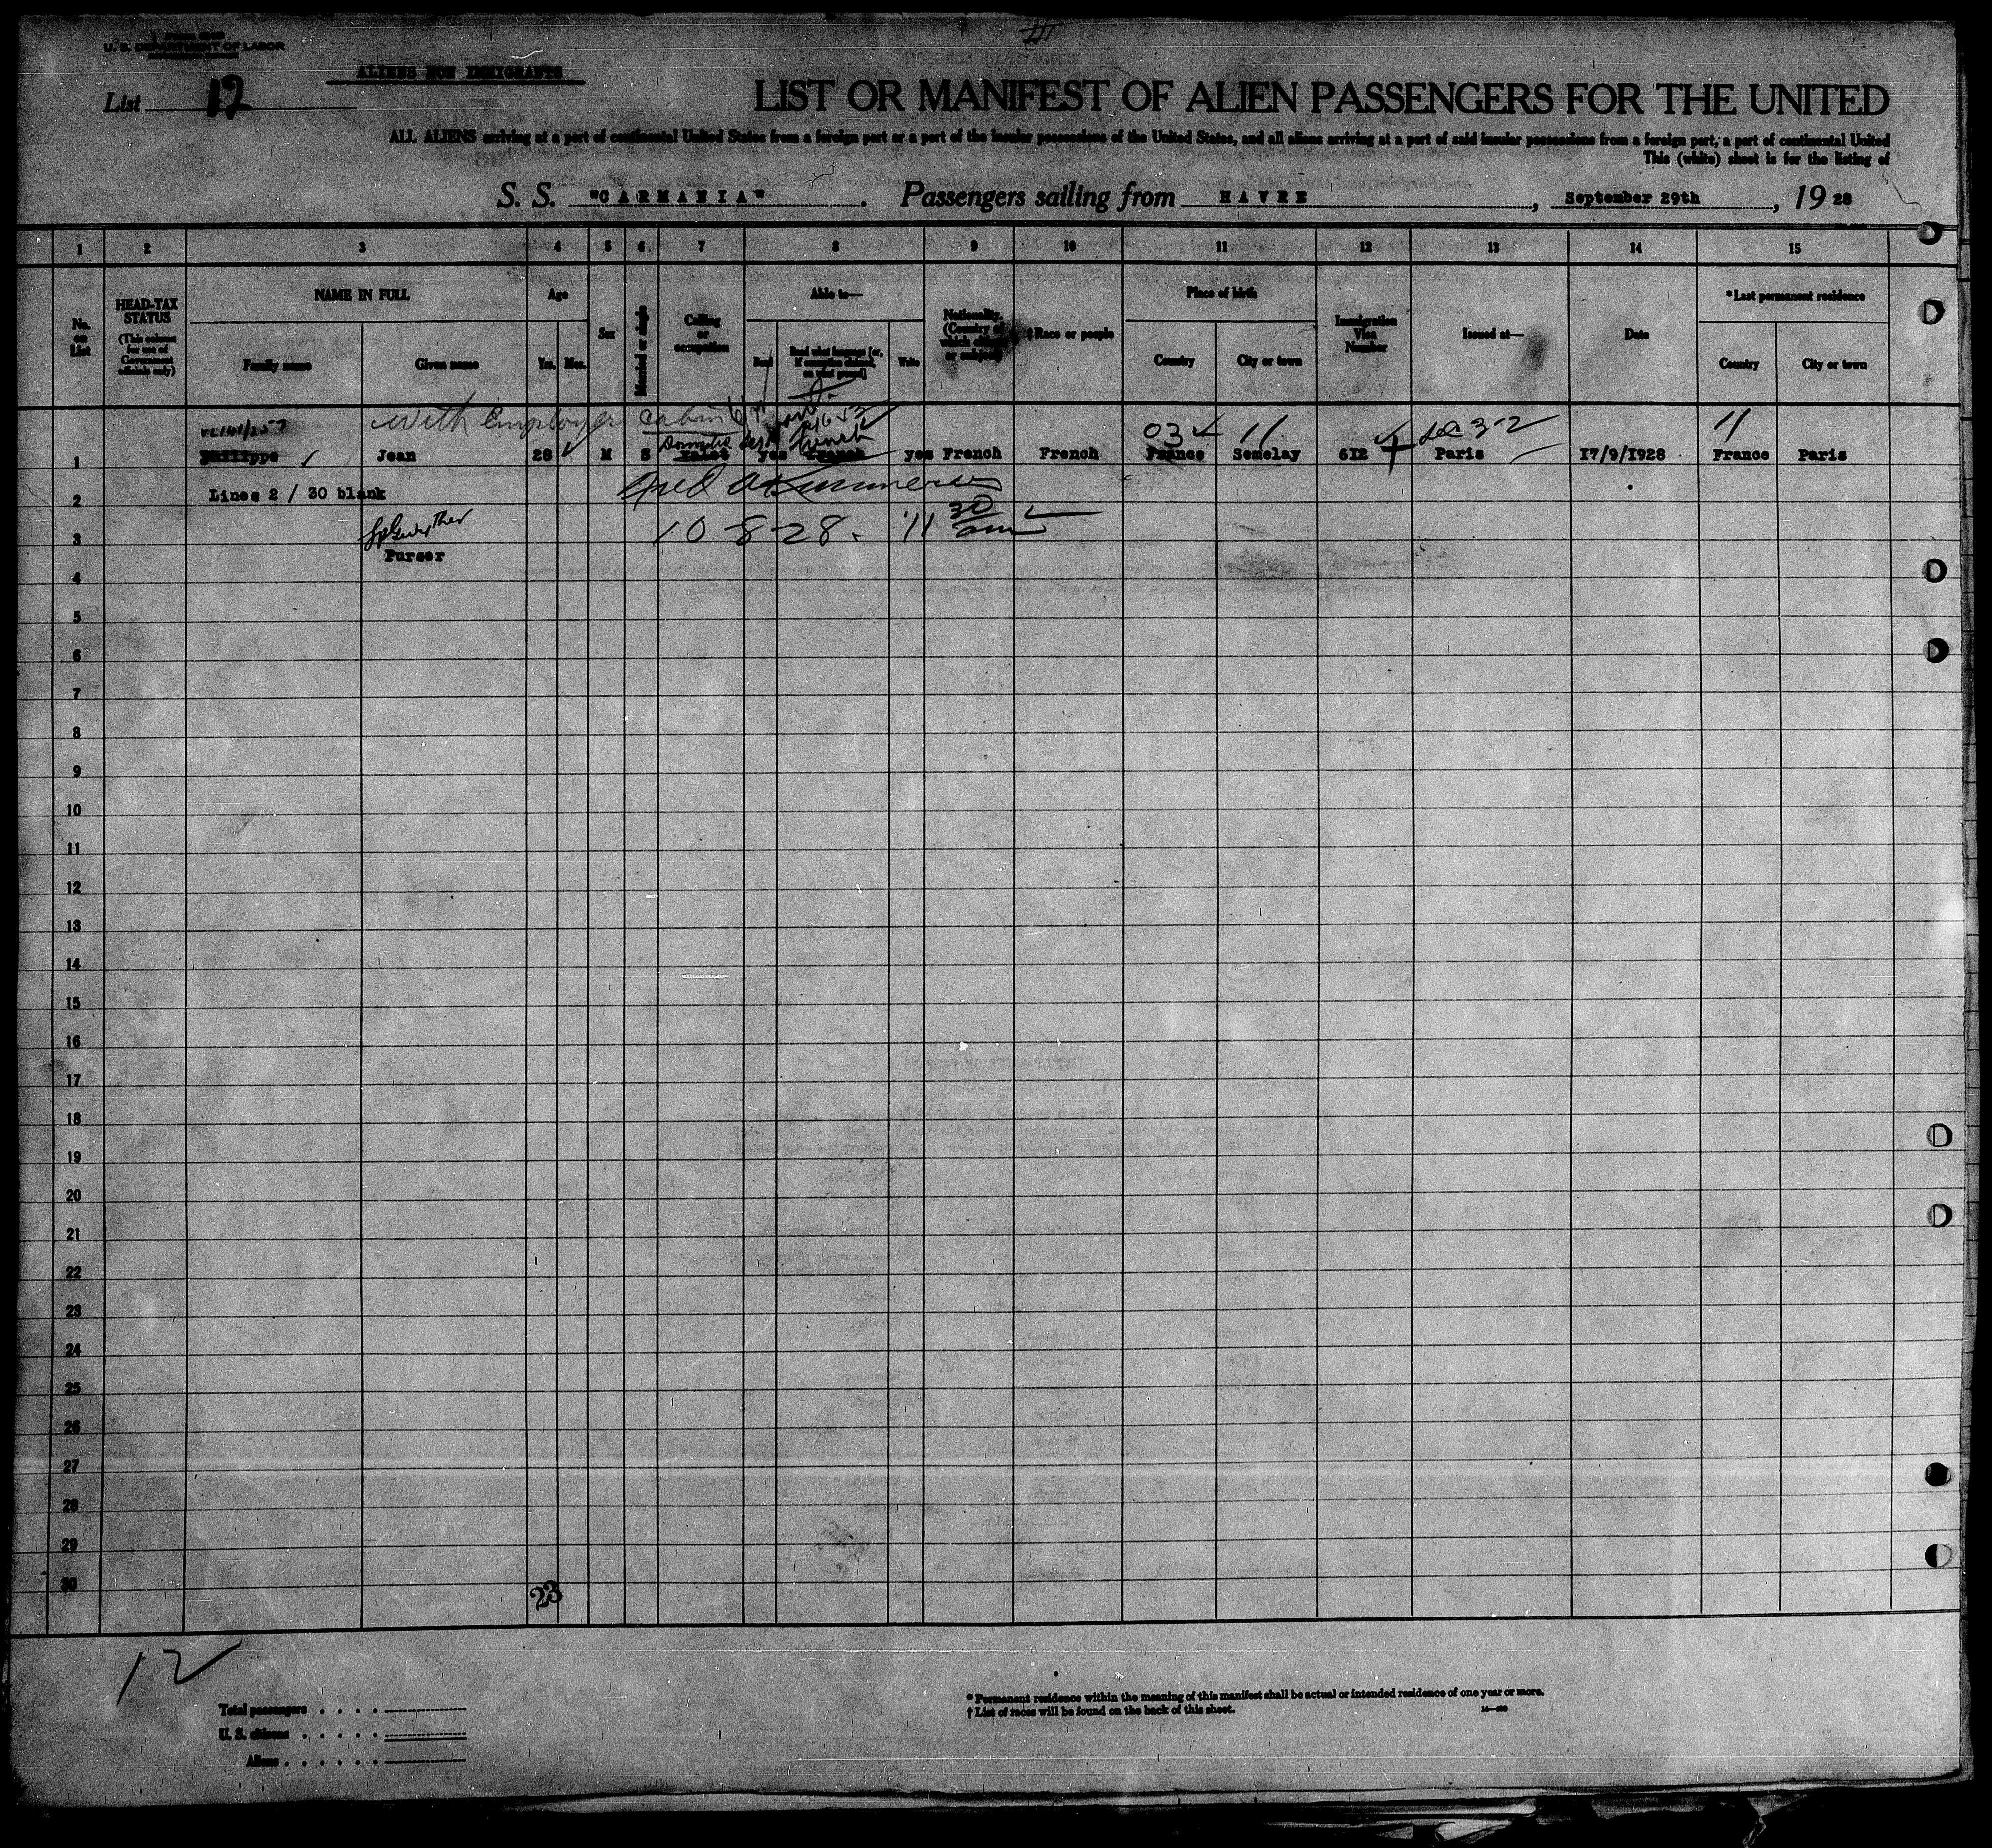 U. S. DEPARTMENT OF LABOR
ALIENS NON IMMIGRANTS
List 12
LIST OR MANIFEST OF ALIEN PASSENGERS FOR THE UNITED
ALL ALIENS arriving at a port of continental United States from a foreign port or a port of the insular possessions of the United States, and all aliens arriving at a port of said insular possessions from a foreign port, a port of continental United
This (white) sheet is for the listing of
S. S. "CARMANIA". Passengers sailing from HAVRE, September 29th, 19 28
1 2 3 4 5 6 7 8 9 10 11 12 13 14 15
No. on List
HEAD-TAX STATUS
(This column for use of Government officials only)
NAME IN FULL
Family name Given name
Age
Yrs. Mos.
Sex
Married or single
Calling or occupation
Able to—
Read
Read what language [or, if exemption claimed, on what ground]
Write
Nationality. (Country of which citizen or subject)
† Race or people
Place of birth
Country City or town
Immigration Visa Number
Issued at—
Date
*Last permanent residence
Country City or town
with Employer Cabin
03 ✓ 11 Sec 3-2 11
1 Philippe ✓ Jean 28 ✓ M S valet yes French yes French French France Semelay 612 Paris 17/9/1928 France Paris
2 Lines 2 / 30 blank
3 10-8-28. 11 30 am
Purser
4
5
6
7
8
9
10
11
12
13
14
15
16
17
18
19
20
21
22
23
24
25
26
27
28
29
30
23
12
Total passengers . . . .
U. S. citizens . . . . .
Aliens . . . . . .
* Permanent residence within the meaning of this manifest shall be actual or intended residence of one year or more.
† List of races will be found on the back of this sheet.